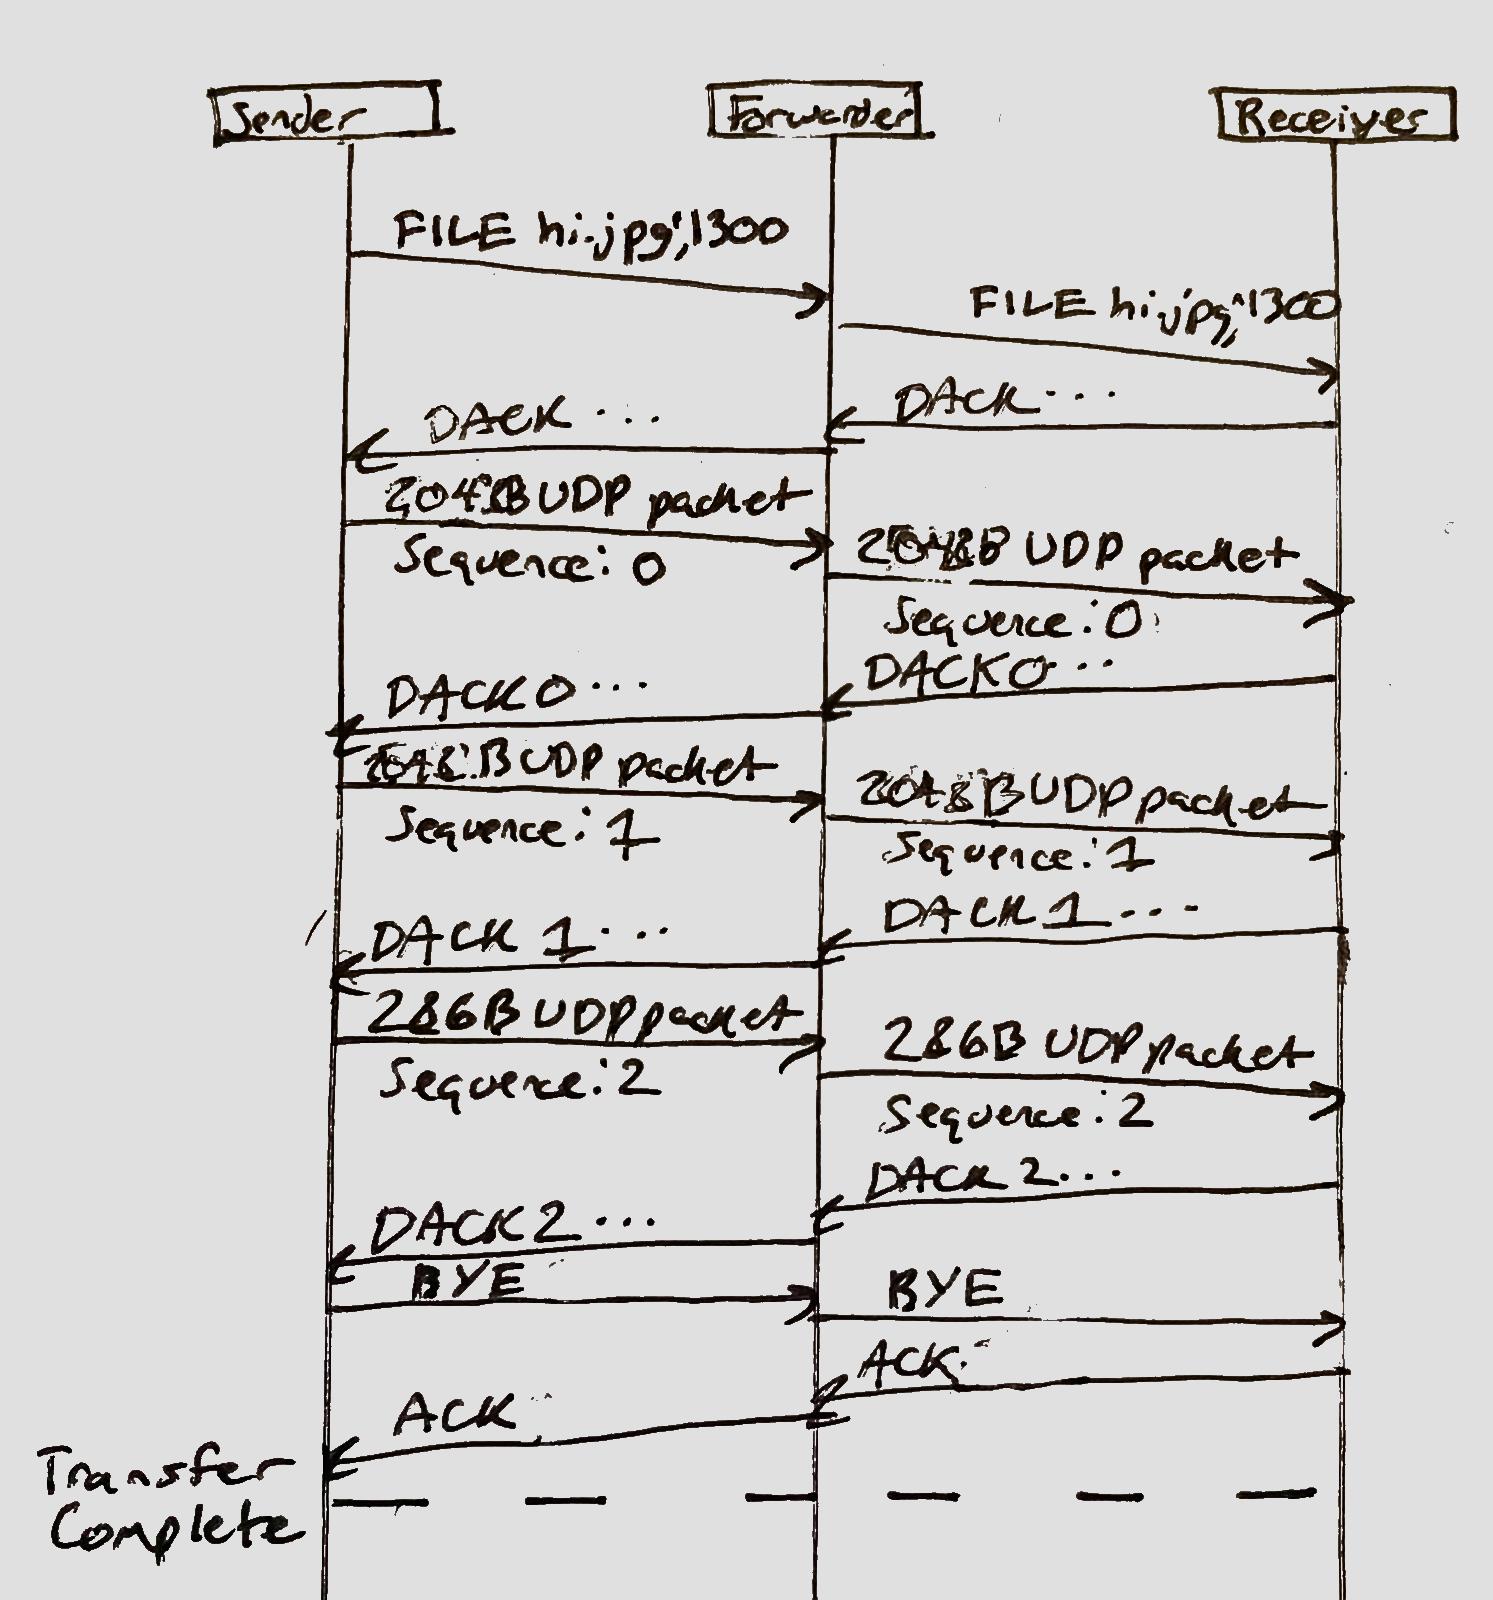 Sender
Forwarder
Receiver
FILE hi.jpg,1300
FILE hi.jpg,1300
DACK ...
DACK ...
2048B UDP packet
Sequence: 0
2048B UDP packet
Sequence: 0
DACK 0 ...
DACK 0 ...
2048B UDP packet
Sequence: 1
2048B UDP packet
Sequence: 1
DACK 1 ...
DACK 1 ...
286B UDP packet
Sequence: 2
286B UDP packet
Sequence: 2
DACK 2 ...
DACK 2 ...
BYE
BYE
ACK
ACK
Transfer
Complete